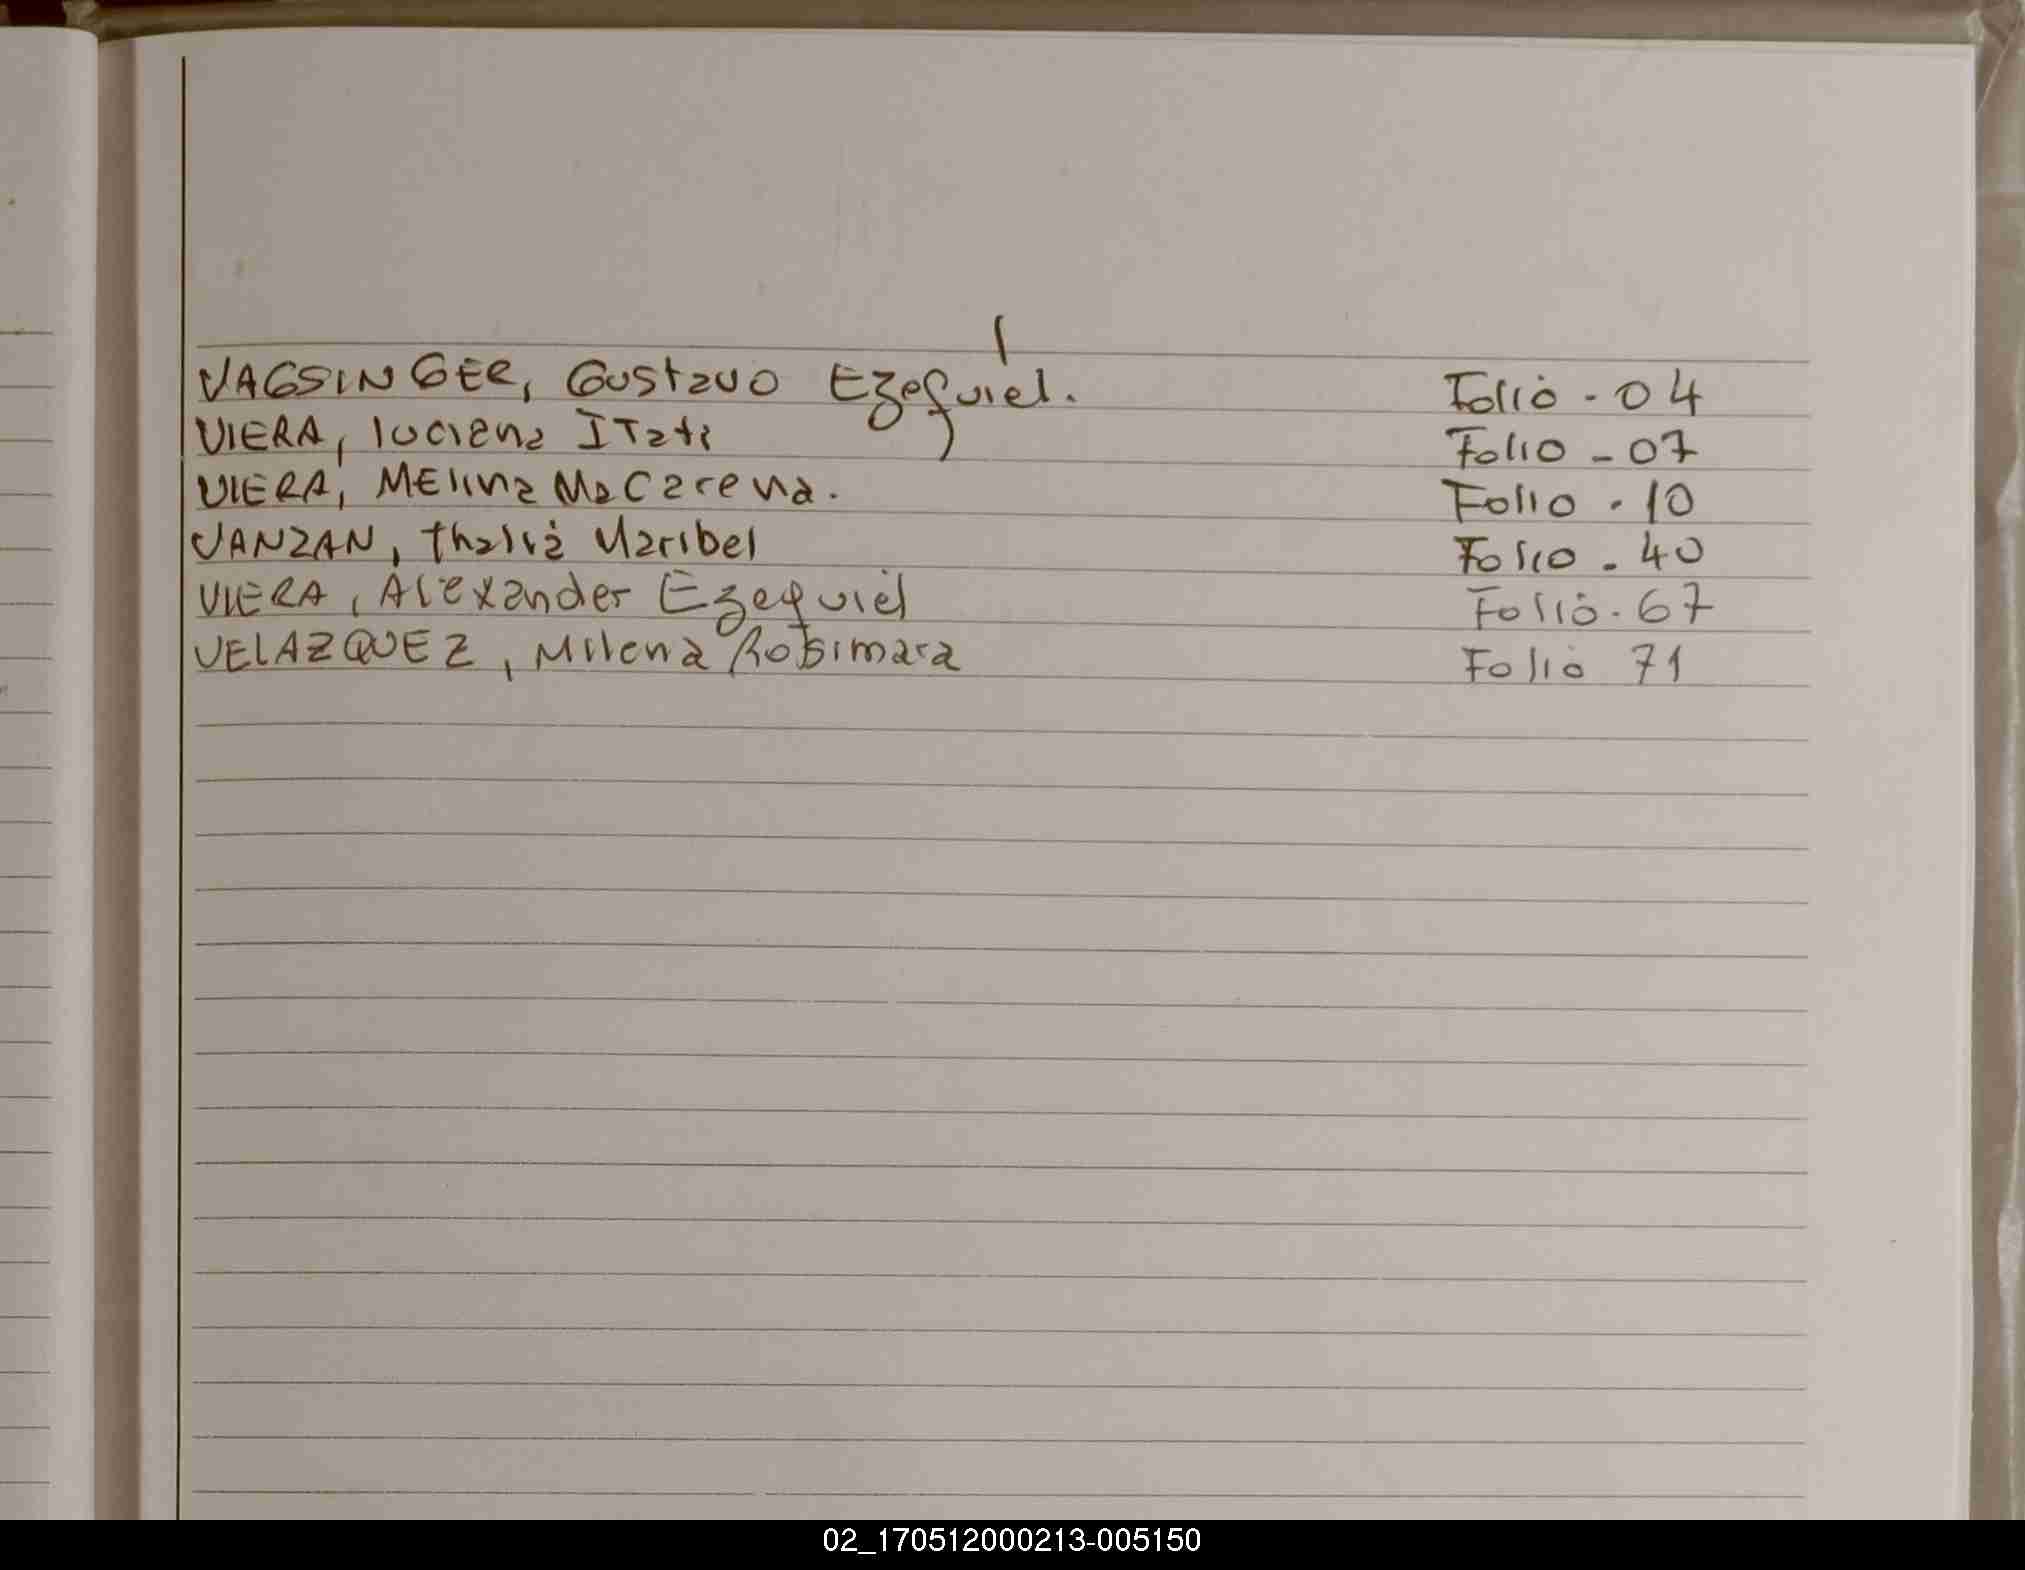 VAGSINGER, Gustavo Ezequiel. Folio - 04
VIERA, luciana ITati Folio - 07
VIERA, MElina Macarena. Folio - 10
VANZAN, thalia Maribel Folio - 40
VIERA, Alexander Ezequiel Folio - 67
VELAZQUEZ, Milena Rosimara Folio 71
02_170512000213-005150